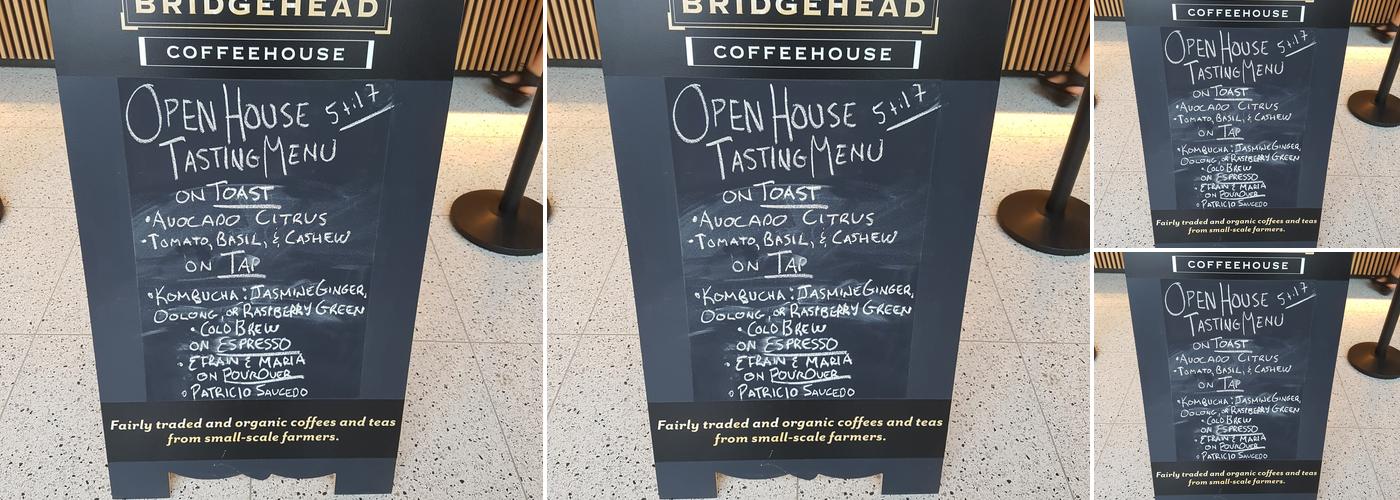 BRIDGEHEAD
COFFEEHOUSE
OPEN HOUSE 5til 7
TASTING MENU
ON TOAST
•AVOCADO CITRUS
•TOMATO, BASIL, & CASHEW
ON TAP
•KOMBUCHA: JASMINE GINGER,
OOLONG, OR RASPBERRY GREEN
•COLD BREW
ON ESPRESSO
•EFRAIN & MARIA
ON POUROVER
•PATRICIO SAUCEDO
Fairly traded and organic coffees and teas
from small-scale farmers.
BRIDGEHEAD
COFFEEHOUSE
OPEN HOUSE 5til 7
TASTING MENU
ON TOAST
•AVOCADO CITRUS
•TOMATO, BASIL, & CASHEW
ON TAP
•KOMBUCHA: JASMINE GINGER,
OOLONG, OR RASPBERRY GREEN
•COLD BREW
ON ESPRESSO
•EFRAIN & MARIA
ON POUROVER
•PATRICIO SAUCEDO
Fairly traded and organic coffees and teas
from small-scale farmers.
COFFEEHOUSE
OPEN HOUSE 5til 7
TASTING MENU
ON TOAST
•AVOCADO CITRUS
•TOMATO, BASIL, & CASHEW
ON TAP
•KOMBUCHA: JASMINE GINGER,
OOLONG, OR RASPBERRY GREEN
•COLD BREW
ON ESPRESSO
•EFRAIN & MARIA
ON POUROVER
•PATRICIO SAUCEDO
Fairly traded and organic coffees and teas
from small-scale farmers.
COFFEEHOUSE
OPEN HOUSE 5til 7
TASTING MENU
ON TOAST
•AVOCADO CITRUS
•TOMATO, BASIL, & CASHEW
ON TAP
•KOMBUCHA: JASMINE GINGER,
OOLONG, OR RASPBERRY GREEN
•COLD BREW
ON ESPRESSO
•EFRAIN & MARIA
ON POUROVER
•PATRICIO SAUCEDO
Fairly traded and organic coffees and teas
from small-scale farmers.